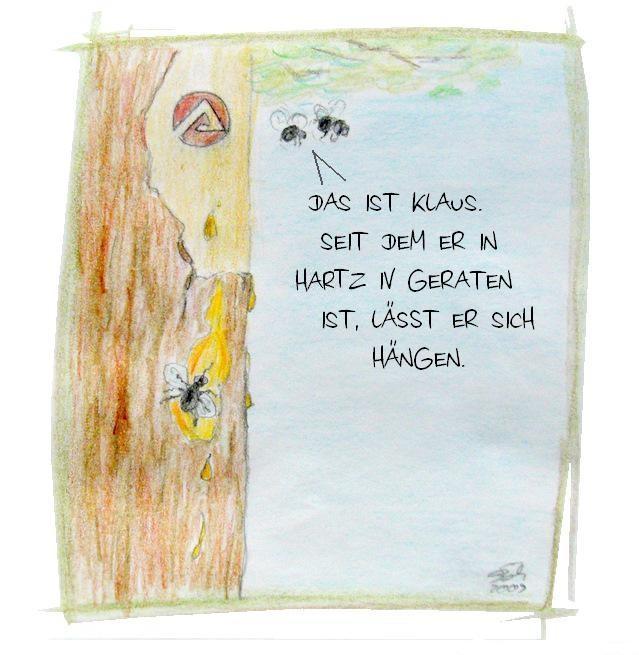 DAS IST KLAUS.
SEIT DEM ER IN
HARTZ IV GERATEN
IST, LÄSST ER SICH
HÄNGEN.